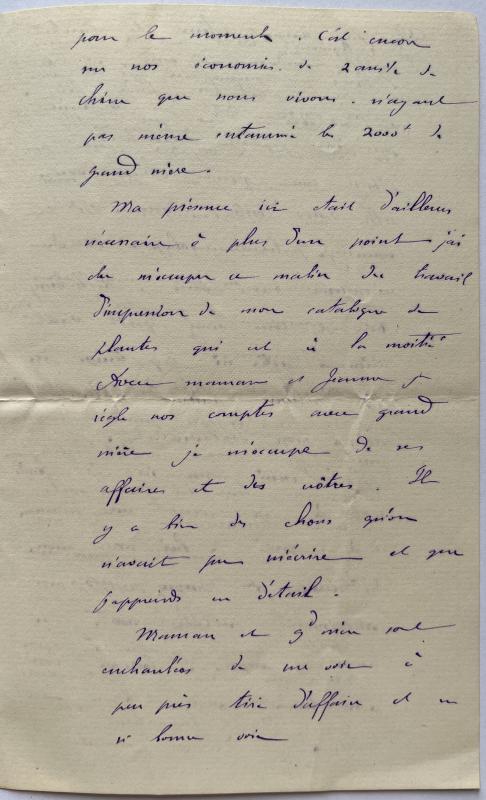 pour le moment. C'est encore
sur nos économies de 2 ans ½ de
chine que nous vivons. n'ayant
pas même entammé les 2000f de
grand mère.
Ma présence ici était d'ailleurs
nécessaire à plus d'un point j'ai
du m'occuper ce matin du travail
d'impression de mon catalogue de
plantes qui est à la moitié
Avec maman et Jeanne je
règle nos comptes avec grand
mère je m'occupe de ses
affaires et des nôtres. Il
y a bien des choses qu'on
n'avait pu m'écrire et que
j'apprends en détail.
Maman et gd mère sont
enchantées de me voir à
peu près tiré d'affaire et en
si bonne voie